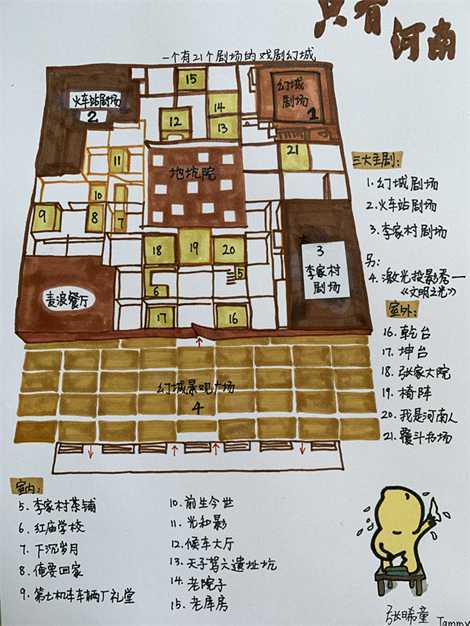 只有
河南
一个有21个剧场的戏剧幻城
火车站剧场
2
15
14
13
12
幻城
剧场
1
21
11
地坑院
10
9
8
7
三大主剧:
1.幻城剧场
2.火车站剧场
3.李家村剧场
另:
4.激光投影秀—
《文明之光》
3
李家村
剧场
18
19
20
5
6
麦浪餐厅
17
16
室外:
16.乾台
17.坤台
18.张家大院
19.椅阵
20.我是河南人
21.覆斗书场
幻城景观广场
4
室内:
5.李家村茶铺
6.红庙学校
7.下沉岁月
8.俺要回家
9.第七机车车辆厂礼堂
10.前生今世
11.光和影
12.候车大厅
13.天子驾六遗址坑
14.老院子
15.老库房
张晞童
Tammy